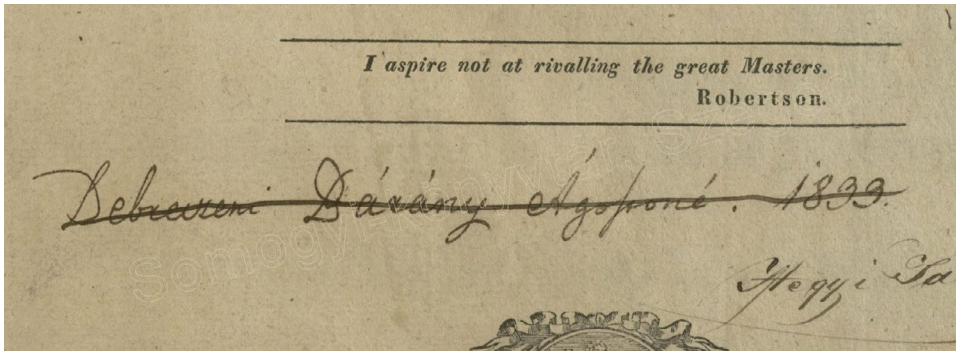 I aspire not at rivalling the great Masters.
Robertson.
Debreczeni Dárány Ágostoné. 1833.
Hegyi